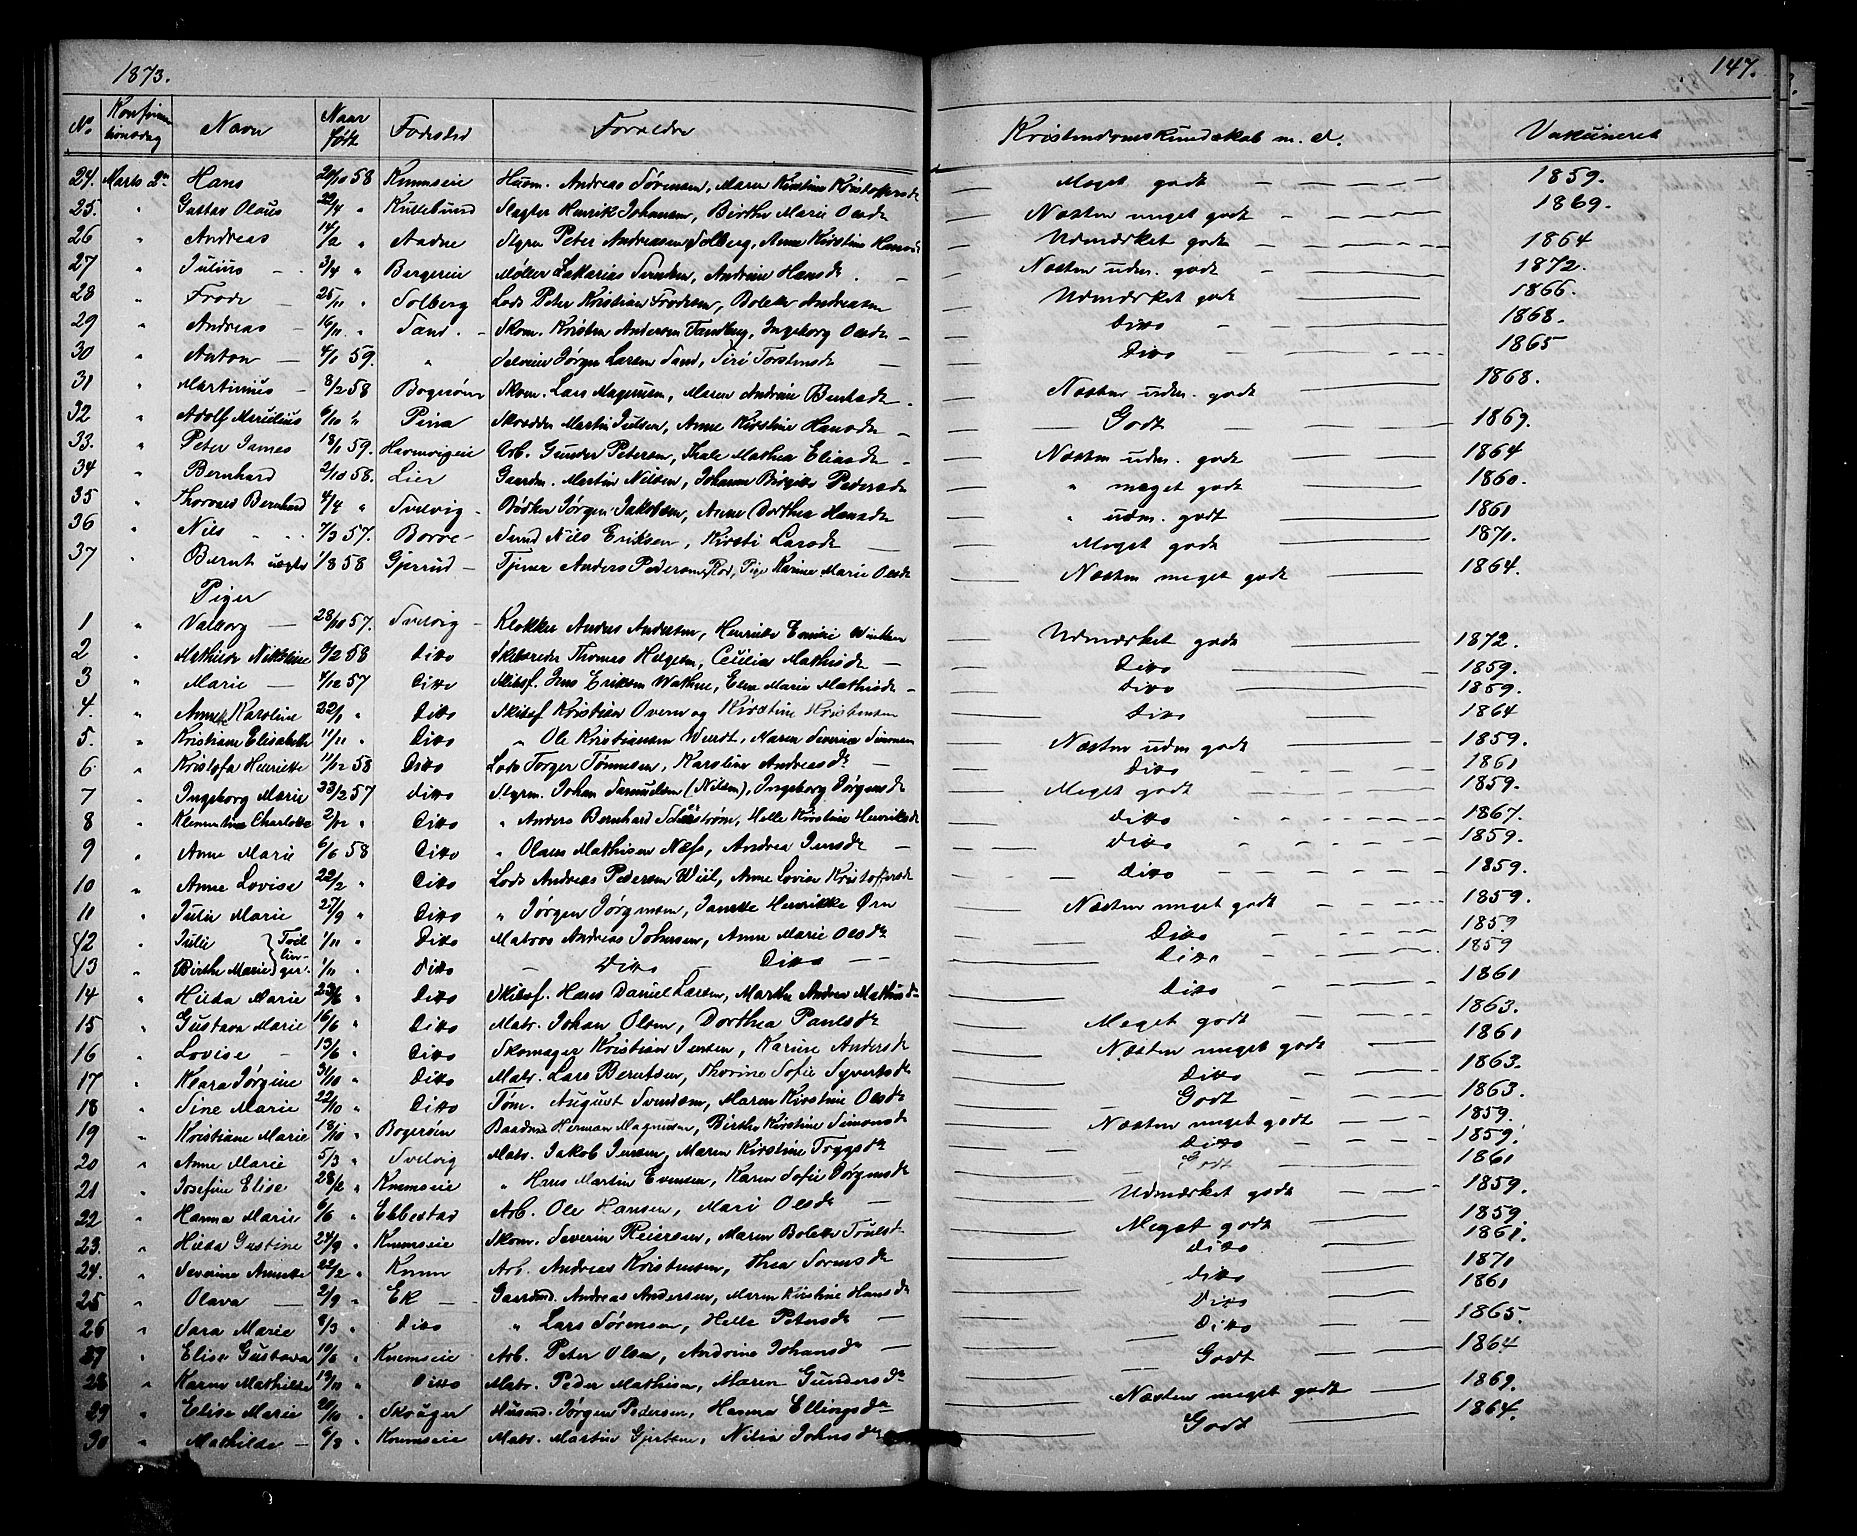 1873.
147.
No Konfirmationsdag Navn Naar født Fødested Forældre Kristendomskundskab m. d. Vakcineret
24. Marts 2den Hans 20/10 58 Knemseie Husm. Andreas Sørensen, Maren Kirstine Kristofersdr Meget godt 1859.
25. " Gustav Olaus 22/4 " Kullebund Slagter Henrik Johansen, Birthe Marie Olsdr Næsten meget godt 1869.
26 " Andreas 14/2 " Aadne Styrm Peter Andreassen Solberg, Anne Kirstine Hansd Udmærket godt 1864
27 " Julius 3/4 " Bergereie Møller Zakarias Svendsen, Andrine Hansdr Næsten udm. godt 1872.
28 " Frode 25/11 " Solberg Lods Peter Kristian Frodesen, Bolette Andreasen Udmærket godt 1866.
29 " Andreas 16/11 " Sand Skom. Kristen Andersen Tandberg, Ingeborg Olsdr Ditto 1868.
30 " Anton 4/1 59. " Selveier Jørgen Larsen Sand, Siri Torstensdr Ditto 1865
31 " Martinius 8/2 58 Bogerøen Skom. Lars Magnusen, Maren Andrine Bentsdr Næsten udm. godt 1868.
32 " Adolf Meridius 6/10 " Pina Skrædder Martin Julsen, Anne Kirstine Hansdr Godt 1869.
33. " Peter James 18/1 59. Havnvigeie Arb. Gunder Petersen, Thale Mathea Eliasdr Næsten udm. godt 1864
34 " Bernhard 2/10 58. Lier Gaardm. Martin Nilsen, Johanne Birgitte Pedersdr " meget godt 1860.
35 " Thorvald Bernhard 4/4 " Svelvig Bødker Jørgen Jakobsen, Anne Dorthea Hansdr " udm. godt 1861
36 " Nils 7/3 57. Borre Svend Nils Eriksen, Kirsti Larsdr Meget godt 1870.
37 " Bernt uægte 1/8 58 Gjerrud Tjener Anders Pedersen Rød, Pige Karine Marie Olsdr Næsten meget godt 1864.
Piger
1 " Valborg 28/10 57. Svelvig Klokker Anders Andersen, Henriette Emilie Winther Udmærket godt 1872.
2 " Mathilde Nikoline 9/2 58 Ditto Skibsreder Thomas Helgesen, Cecilia Mathisdr Ditto 1859.
3 " Marie 4/12 57 Ditto Skibsf. Jens Eriksen Wathne, Elen Marie Mathisdr Ditto 1859.
4. " Annette Karoline 22/1 " Ditto Skibsf Kristian Overn og Kirstine Kristensen Ditto 1864
5. " Kristiane Elisabeth 11/11 " Ditto " Ole Kristiansen Werdt, Maren Severine Simonsen Næsten udm godt 1859.
6 " Kristofa Henriette 11/12 58 Ditto Lods Torger Tønnesen, Karoline Andreasdr Ditto 1861
7 " Ingeborg Marie 23/2 57 ditto Styrm. Johan Samuelsen (Nilsen), Ingeborg Jørgensdr Meget godt 1859.
8 " Klementine Charlotte 2/12 " Ditto " Anders Bernhard Sjøstrøm, Helle Kirstine Henriksdr ditto 1867.
9 " Anne Marie 6/6 58 Ditto " Olaus Mathisen Næss, Andrea Jensdr ditto 1859.
10 " Anne Lovise 22/2 " Ditto Lods Andreas Pedersen Wiil, Anne Lovise Kristofersdr ditto 1859.
11 " Julie Marie 27/9 " Ditto " Jørgen Jørgensen, Janette Henrikke Ørn Næsten meget godt 1859.
12 " Julie } Tvillinger 1/11 " Ditto Matros Andreas Johnsen, Anne Marie Olsdr Ditto 1859
13 " Birthe Marie 1/11 " Ditto Ditto Ditto Ditto 1859
14 " Hilda Marie 23/6 " Ditto Skibsf. Hans Daniel Larsen, Marthe Andrea Mathisdr Ditto 1861
15 " Gustava Marie 16/6 " Ditto Matr. Johan Olsen, Dorthea Paulsdr Meget godt 1863.
16 " Lovise 13/6 " Ditto Skomager Kristian Jensen, Karine Andersdr Næsten meget godt 1861
17 " Klara Jørgine 31/10 " Ditto Matr. Lars Berntsen, Thorine Sofie Syvertsdr Ditto 1863.
18 " Sine Marie 22/10 " Ditto Tøm. August Svendsen, Maren Kirstine Olsdr Godt 1863.
19 " Kristiane Marie 18/10 " Bogerøen Baadsmd Herman Magnusen, Birthe Kirstine Simonsdr Næsten meget godt 1859.
20 " Anne Marie 5/3 " Svelvig Matr. Jakob Jensen, Maren Kirstine Trygsdr Ditto 1859.
21 " Josefine Elise 28/2 " Knemseie " Hans Martin Evensen, Karen Sofie Jørgensdr Godt 1861
22 " Hanna Marie 6/6 " Ebbestad Arb. Ole Hansen, Mari Olsdr Udmærket godt 1859.
23. " Hilda Gustine 24/9 " Knemseie Skom. Severin Reiersen, Maren Bolette Trulsd Meget godt 1859.
24. " Severine Annette 22/2 " Knem Arb. Andreas Kristensen, Thea Sørensdr ditto 1861.
25 " Olava 2/9 " Ek Gaardmd. Andreas Andersen, Maren Kirstine Hansdr ditto 1870
26 " Sara Marie 8/3 " Ditto " Lars Sørensen, Helle Petersdr Ditto 1861
27 " Elise Gustava 19/6 " Knemseie Arb. Peter Olsen, Andrine Johansdr Ditto 1865.
28 " Karen Mathilde 13/10 " Ditto Matr. Peder Mathisen, Maren Gundersdr Godt 1864
29 " Elise Marie 20/10 " Skoger Husmd. Jørgen Pedersen, Hanna Ellingsdr Næsten meget godt 1869.
30 " Mathilde 6/3 " Knemseie Matr. Martin Gjertsen, Nilia Johnsdr Godt 1864.